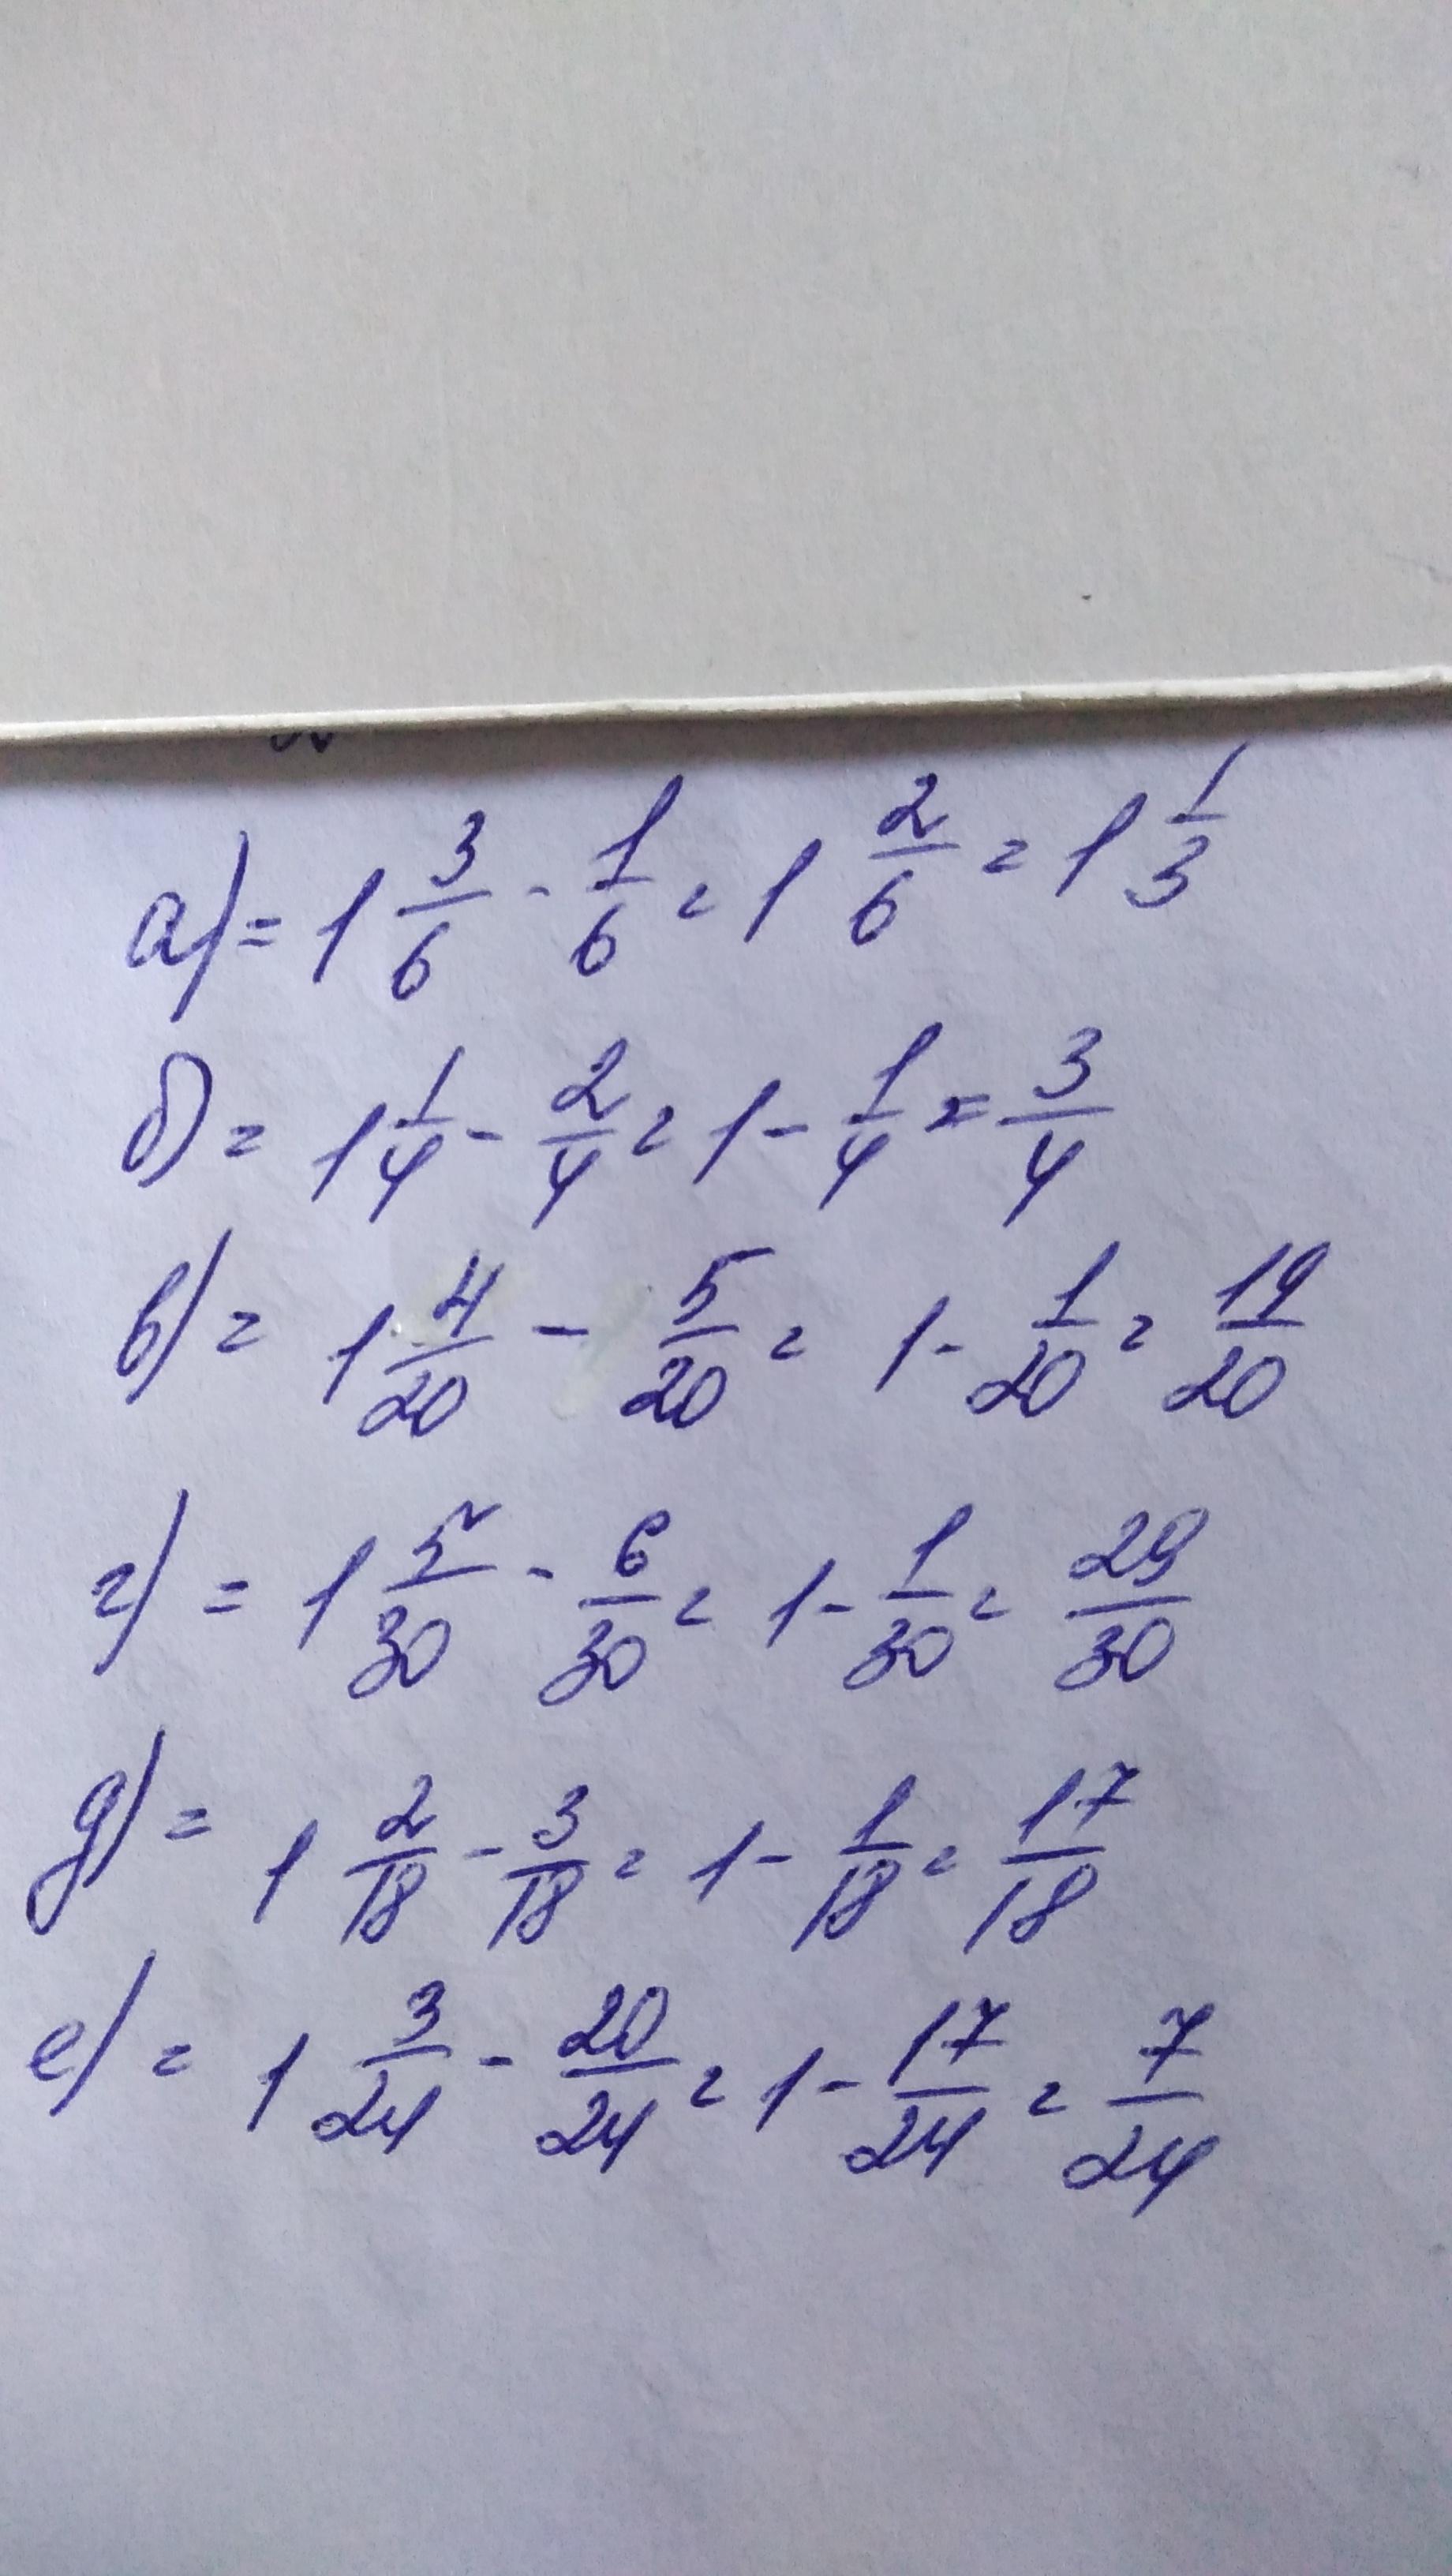 а) = 1 3/6 - 1/6 = 1 2/6 = 1 1/3
б) = 1 1/4 - 2/4 = 1 - 1/4 = 3/4
в) = 1 4/20 - 5/20 = 1 - 1/20 = 19/20
г) = 1 5/30 - 6/30 = 1 - 1/30 = 29/30
д) = 1 2/18 - 3/18 = 1 - 1/18 = 17/18
е) = 1 3/24 - 20/24 = 1 - 17/24 = 7/24